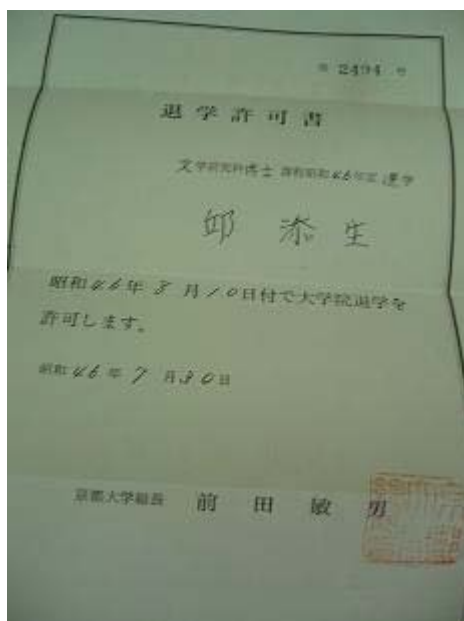 第 2494 号
退学許可書
文学研究科博士課程昭和46年度進学
邱 添 生
昭和46年8月10日付で大学院退学を
許可します。
昭和46年7月30日
京都大学総長 前田敏男